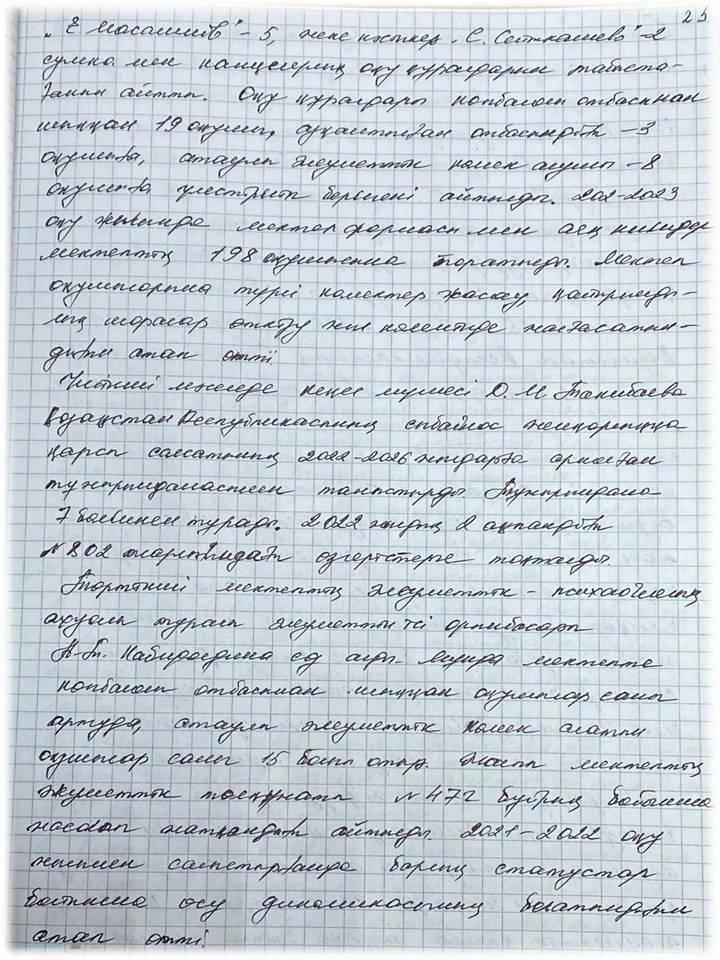 25
„Е Масалимов" – 5, жеке кәсіпкер „С. Сейткалиева" – 2
сумка мен канцелярлық оқу құралдарын табыста-
ғанын айтты. Оқу құралдары көпбалалы отбасынан
шыққан 19 оқушы, отбасындағы – 3
оқушыға, атаулы әлеуметтік көмек алушы – 8
оқушыға үлестіріліп берілгені айтылды. 202-2023
оқу жылында мектеп формасы мен аяқ киімдер
мектептің 198 оқушысына таратылды. Мектеп
оқушыларына түрлі көмектер жасау, қайырымды-
лық шаралар өткізу жыл көлемінде жалғасатын-
дығын атап өтті.
Үшінші мәселеде кеңес мүшесі Д. М
Қазақстан Республикасының сыбайлас жемқорлыққа
қарсы саясатының 2022-2026 жылдарға арналған
тұжырымдамасымен таныстырды. Тұжырымдама
7 бөлімнен тұрады. 2022 жылғы 2 ақпандағы
№ 802 жарлығындағы өзгерістерге тоқталды.
Төртінші мектептің әлеуметтік – психологиялық
ахуалы туралы әлеуметтік іс орынбасары
сөз алды. мектепте
көпбалалы отбасынан шыққан оқушылар саны
артуда, атаулы әлеуметтік көмек алатын
оқушылар саны 15 болып отыр. Жалпы мектептің
әлеуметтік төлқұжаты № 472 бұйрық бойынша
жасалып жатқандығы айтылды. 2021-2022 оқу
жылымен салыстырғанда барлық статустар
бойынша өсу динамикасының болатындығын
атап өтті.